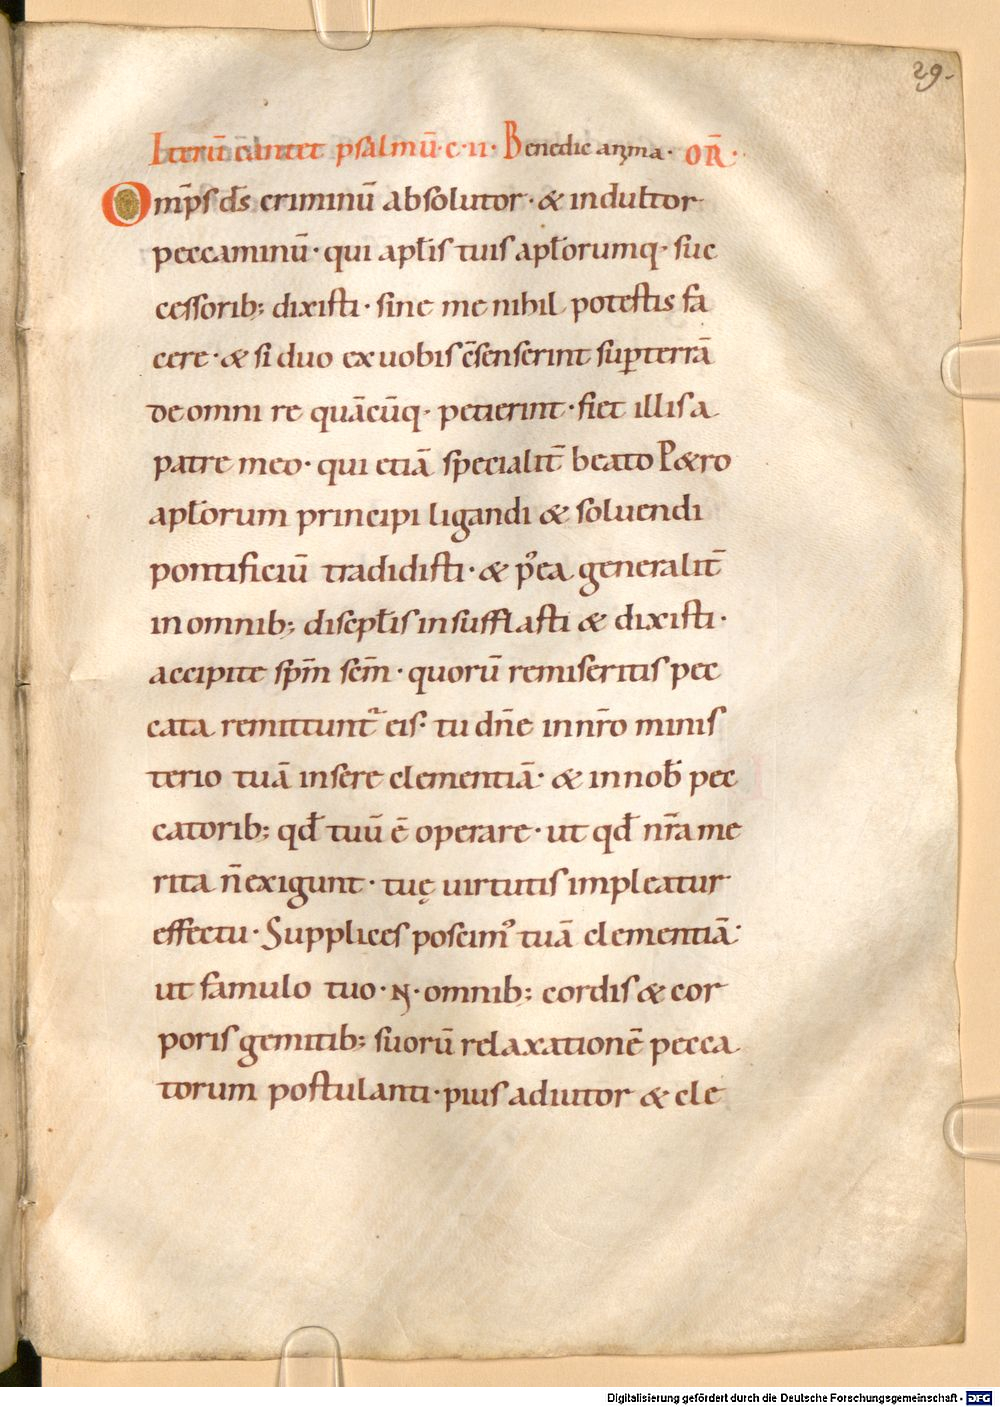 29.
Iterū cantet psalmū·c·ii· Benedic anima· OR̄·
Om̄ps d̄s criminū absolutor· & indultor
peccaminū· qui apl̄is tuis apl̄orumq· suc
cessorib; dixisti· sine me nihil potestis fa
cere· & si duo ex uobis c̄senserint sup̄ terrā
de omni re quācūq· petierint· fiet illis a
patre meo· qui etiā specialit̄ beato P&ro
apl̄orum principi ligandi & soluendi
pontificiū tradidisti· & p̉ea generalit̄
in omnib; discipl̄is insufflasti & dixisti·
accipite sp̄m sc̄m· quorū remiseritis pec
cata remittunt᷑ eis· tu dn̄e in nr̄o minis
terio tuā insere clementiā· & in nob̄ pec
catorib; qd̄ tuū ē operare· ut qd̄ nr̄a me
rita n̄ exigunt· tuę uirtutis impleatur
effectu· Supplices poscim᾿ tuā clementiā·
ut famulo tuo· N̄· omnib; cordis & cor
poris gemitib; suorū relaxationē pecca
torum postulanti· pius adiutor & cle
Digitalisierung gefördert durch die Deutsche Forschungsgemeinschaft - DFG